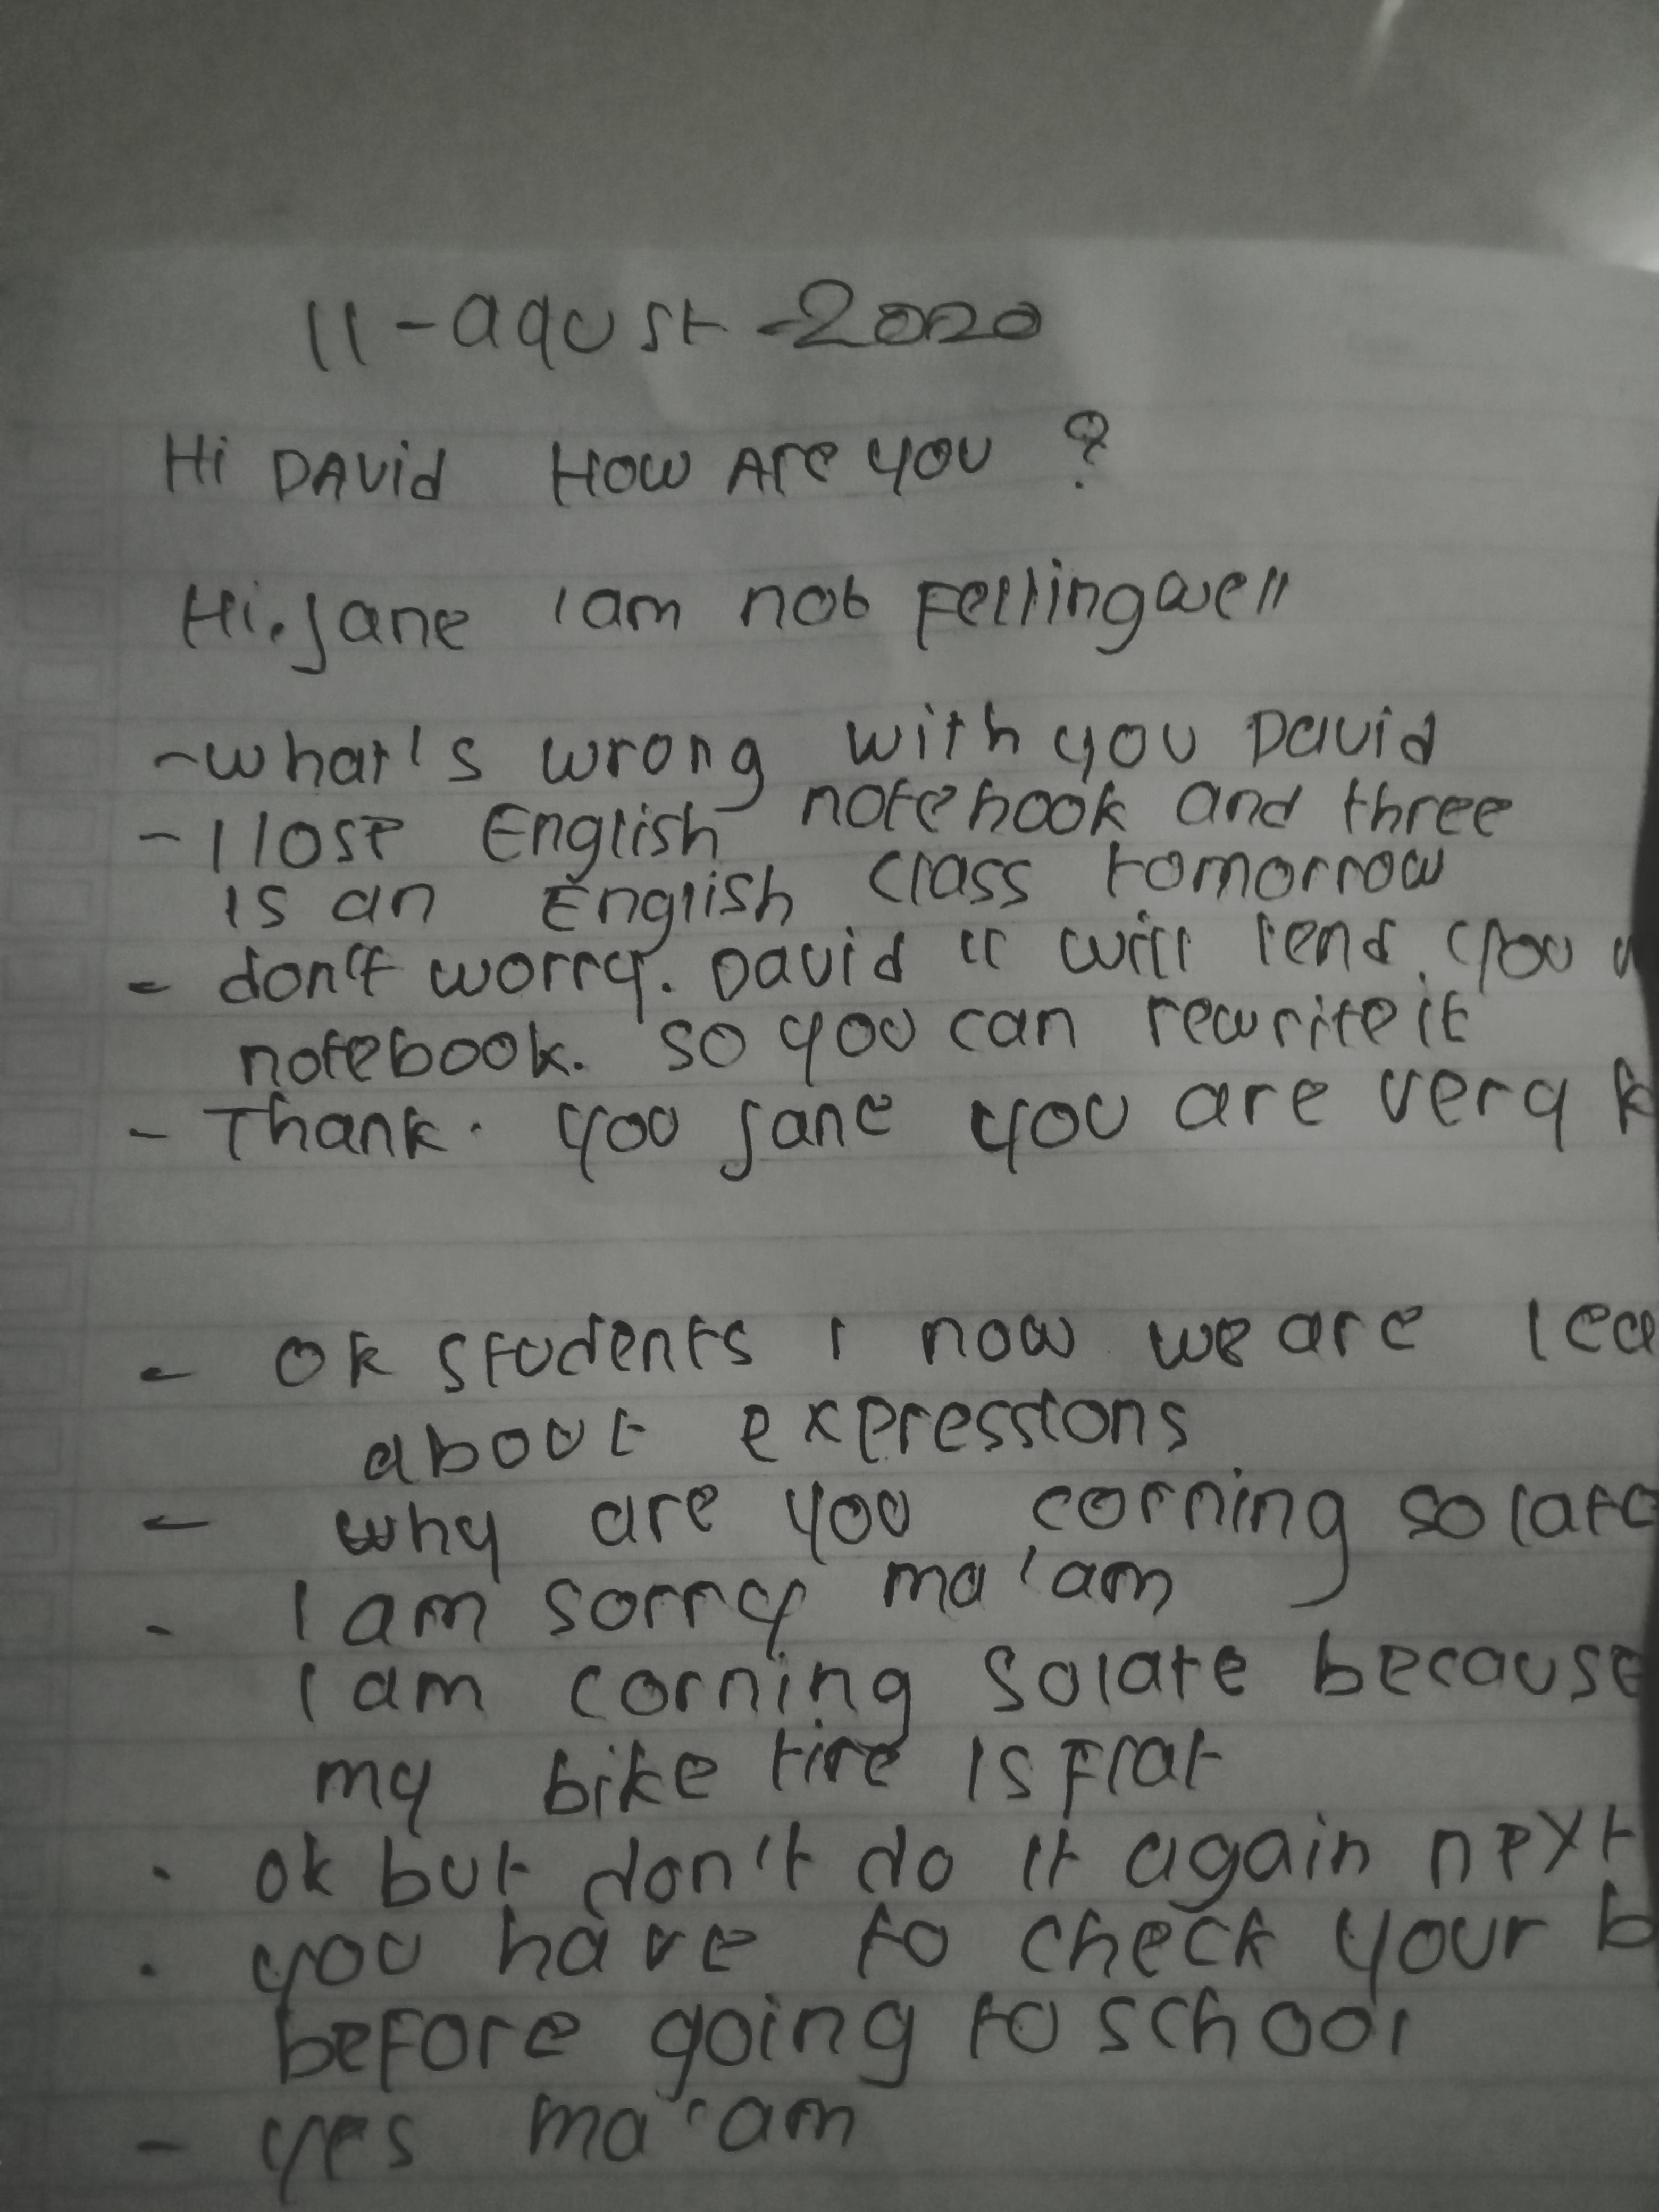 11-agust-2020
Hi DAVid How Are you ?
Hi. Jane I am not Fellingwell
-what's wrong with you David
- I lost English notebook and three
is an English class tomorrow
- don't worry. David II will lend you
notebook. so you can rewrite it
- Thank. you Jane you are very
- Ok students I now we are lea
about expressions
- why are you corning so late
- I am sorry ma'am
I am corning solate because
my bike tire Is Flat
. ok but don't do it again next
. you have to check your b
beFore going to school
- yes ma'am